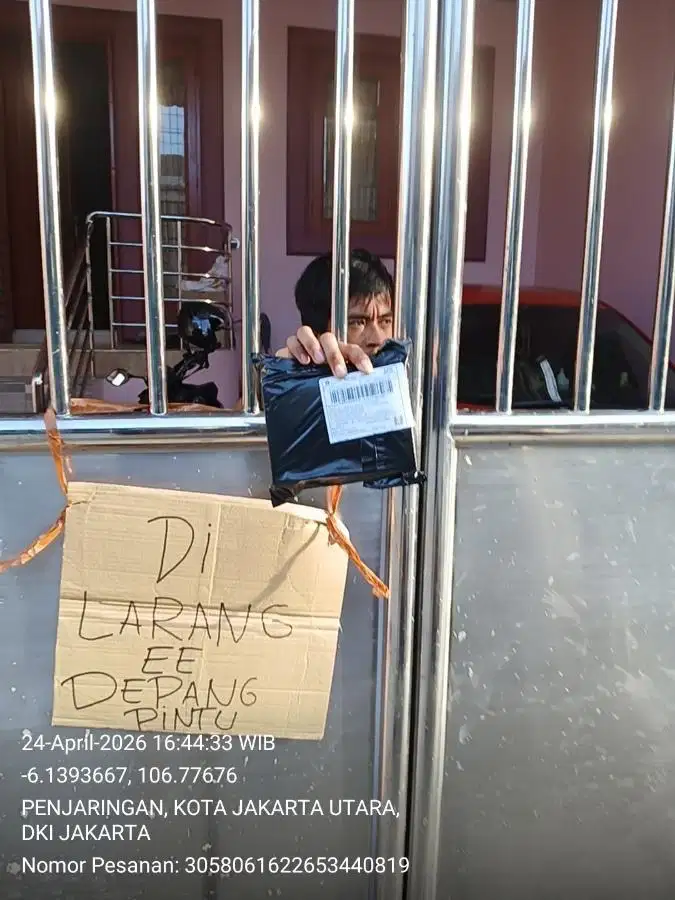 Di
LARANG
EE
DEPANG
PINTU
24-April-2026 16:44:33 WIB
-6.1393667, 106.77676
PENJARINGAN, KOTA JAKARTA UTARA,
DKI JAKARTA
Nomor Pesanan: 3058061622653440819